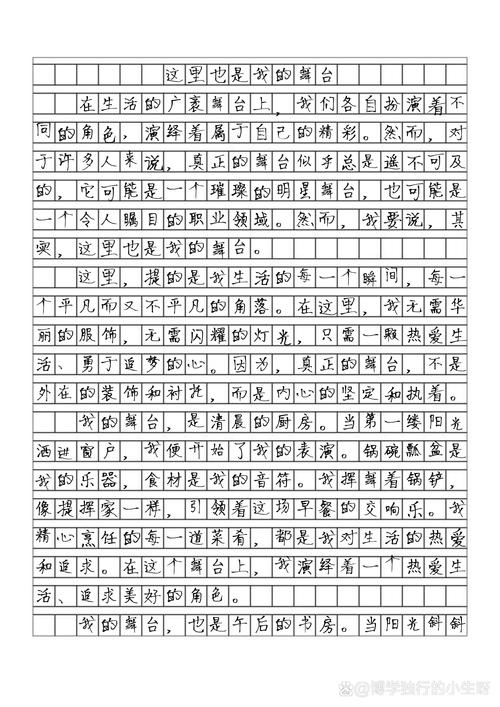 这里也是我的舞台
在生活的广袤舞台上，我们各自扮演着不
同的角色，演绎着属于自己的精彩。然而，对
于许多人来说，真正的舞台似乎总是遥不可及
的，它可能是一个璀璨的明星舞台，也可能是
一个令人瞩目的职业领域。然而，我要说，其
实，这里也是我的舞台。
这里，提的是我生活的每一个瞬间，每一
个平凡而又不平凡的角落。在这里，我无需华
丽的服饰，无需闪耀的灯光，只需一颗热爱生
活、勇于追梦的心。因为，真正的舞台，不是
外在的装饰和衬托，而是内心的坚定和执着。
我的舞台，是清晨的厨房。当第一缕阳光
洒进窗户，我便开始了我的表演。锅碗瓢盆是
我的乐器，食材是我的音符。我挥舞着锅铲，
像提挥家一样，引领着这场早餐的交响乐。我
精心烹饪的每一道菜肴，都是我对生活的热爱
和追求。在这个舞台上，我演绎着一个热爱生
活、追求美好的角色。
我的舞台，也是午后的书房。当阳光斜斜
@博学独行的小生呀